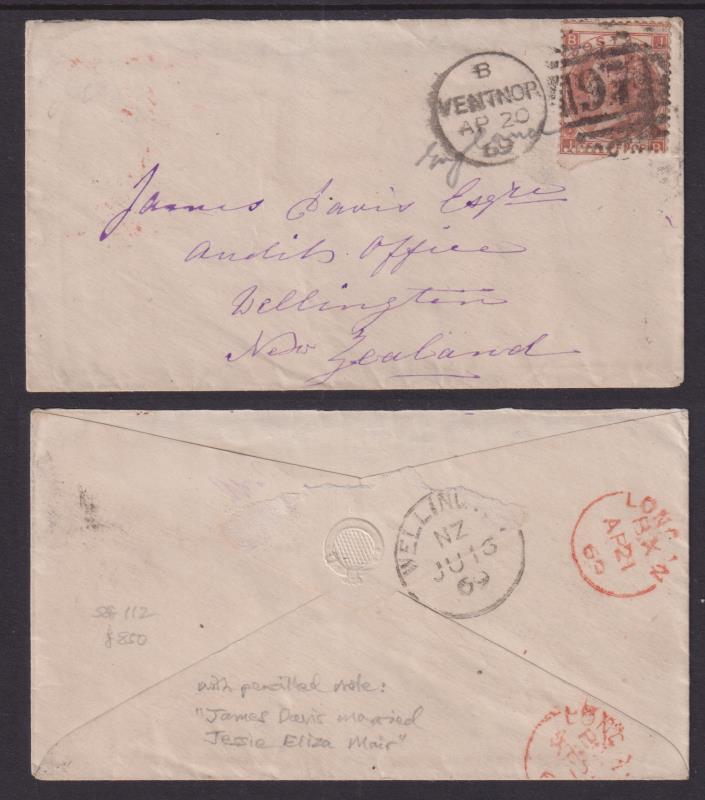 B
VENTNOR
AP 20
69
England
B J
POST
J PENCE B
James Davis Esqre
Audit Office
Wellington
New Zealand
WELLING
NZ
JU 13
69
LON
BX
AP 21
69
SG 112
£850
with pencilled note:
"James Davis married
Jessie Eliza Mair"
LON